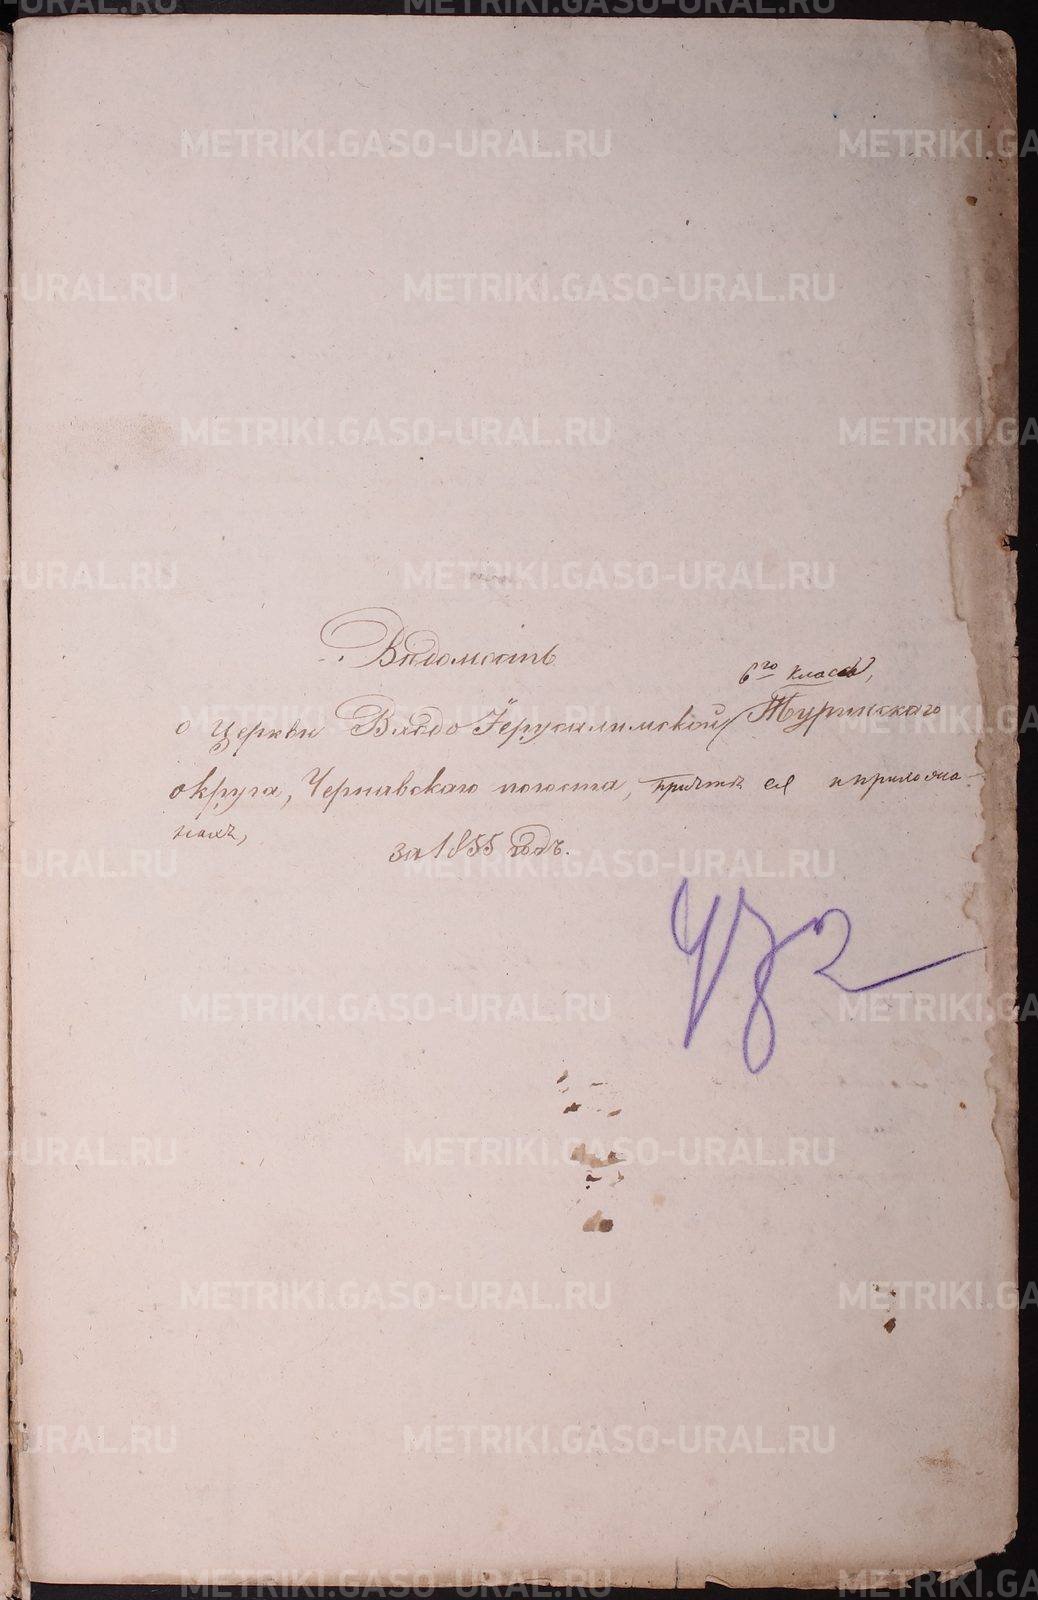 Вѣдомость
6го класса,
о Церкви Входо Іерусалимской, Туринскаго
округа, Чернавскаго погоста, причтѣ ея и прихожа-
нахъ,
за 1855 годъ.
METRIKI.GASO-URAL.RU